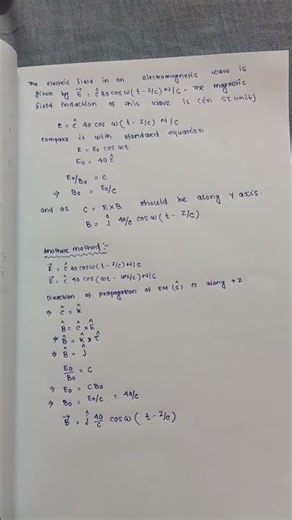 The electric field in an electromagnetic wave is
given by E⃗ = î 40 cos ω(t - z/c) N/C. The magnetic
field induction of this wave is (in SI unit)
E = î 40 cos ω(t - z/c) N/C
compare it with standard equation
E = E₀ cos ωt
E₀ = 40 î
E₀/B₀ = c
⇒ B₀ = E₀/c
and as C = E×B should be along Y axis.
B = ĵ 40/c cos ω(t - z/c)
Another method:-
E⃗ = î 40 cos ω(t - z/c) N/C
E⃗ = î 40 cos (ωt - ωz/c) N/C
Direction of propagation of EM (ĉ) is along +z
⇒ ĉ = k̂
B̂ = ĉ × Ê
⇒ B̂ = k̂ × î
⇒ B̂ = ĵ
E₀/B₀ = c
⇒ E₀ = CB₀
⇒ B₀ = E₀/c = 40/c
B⃗ = ĵ 40/c cos ω (t - z/c)